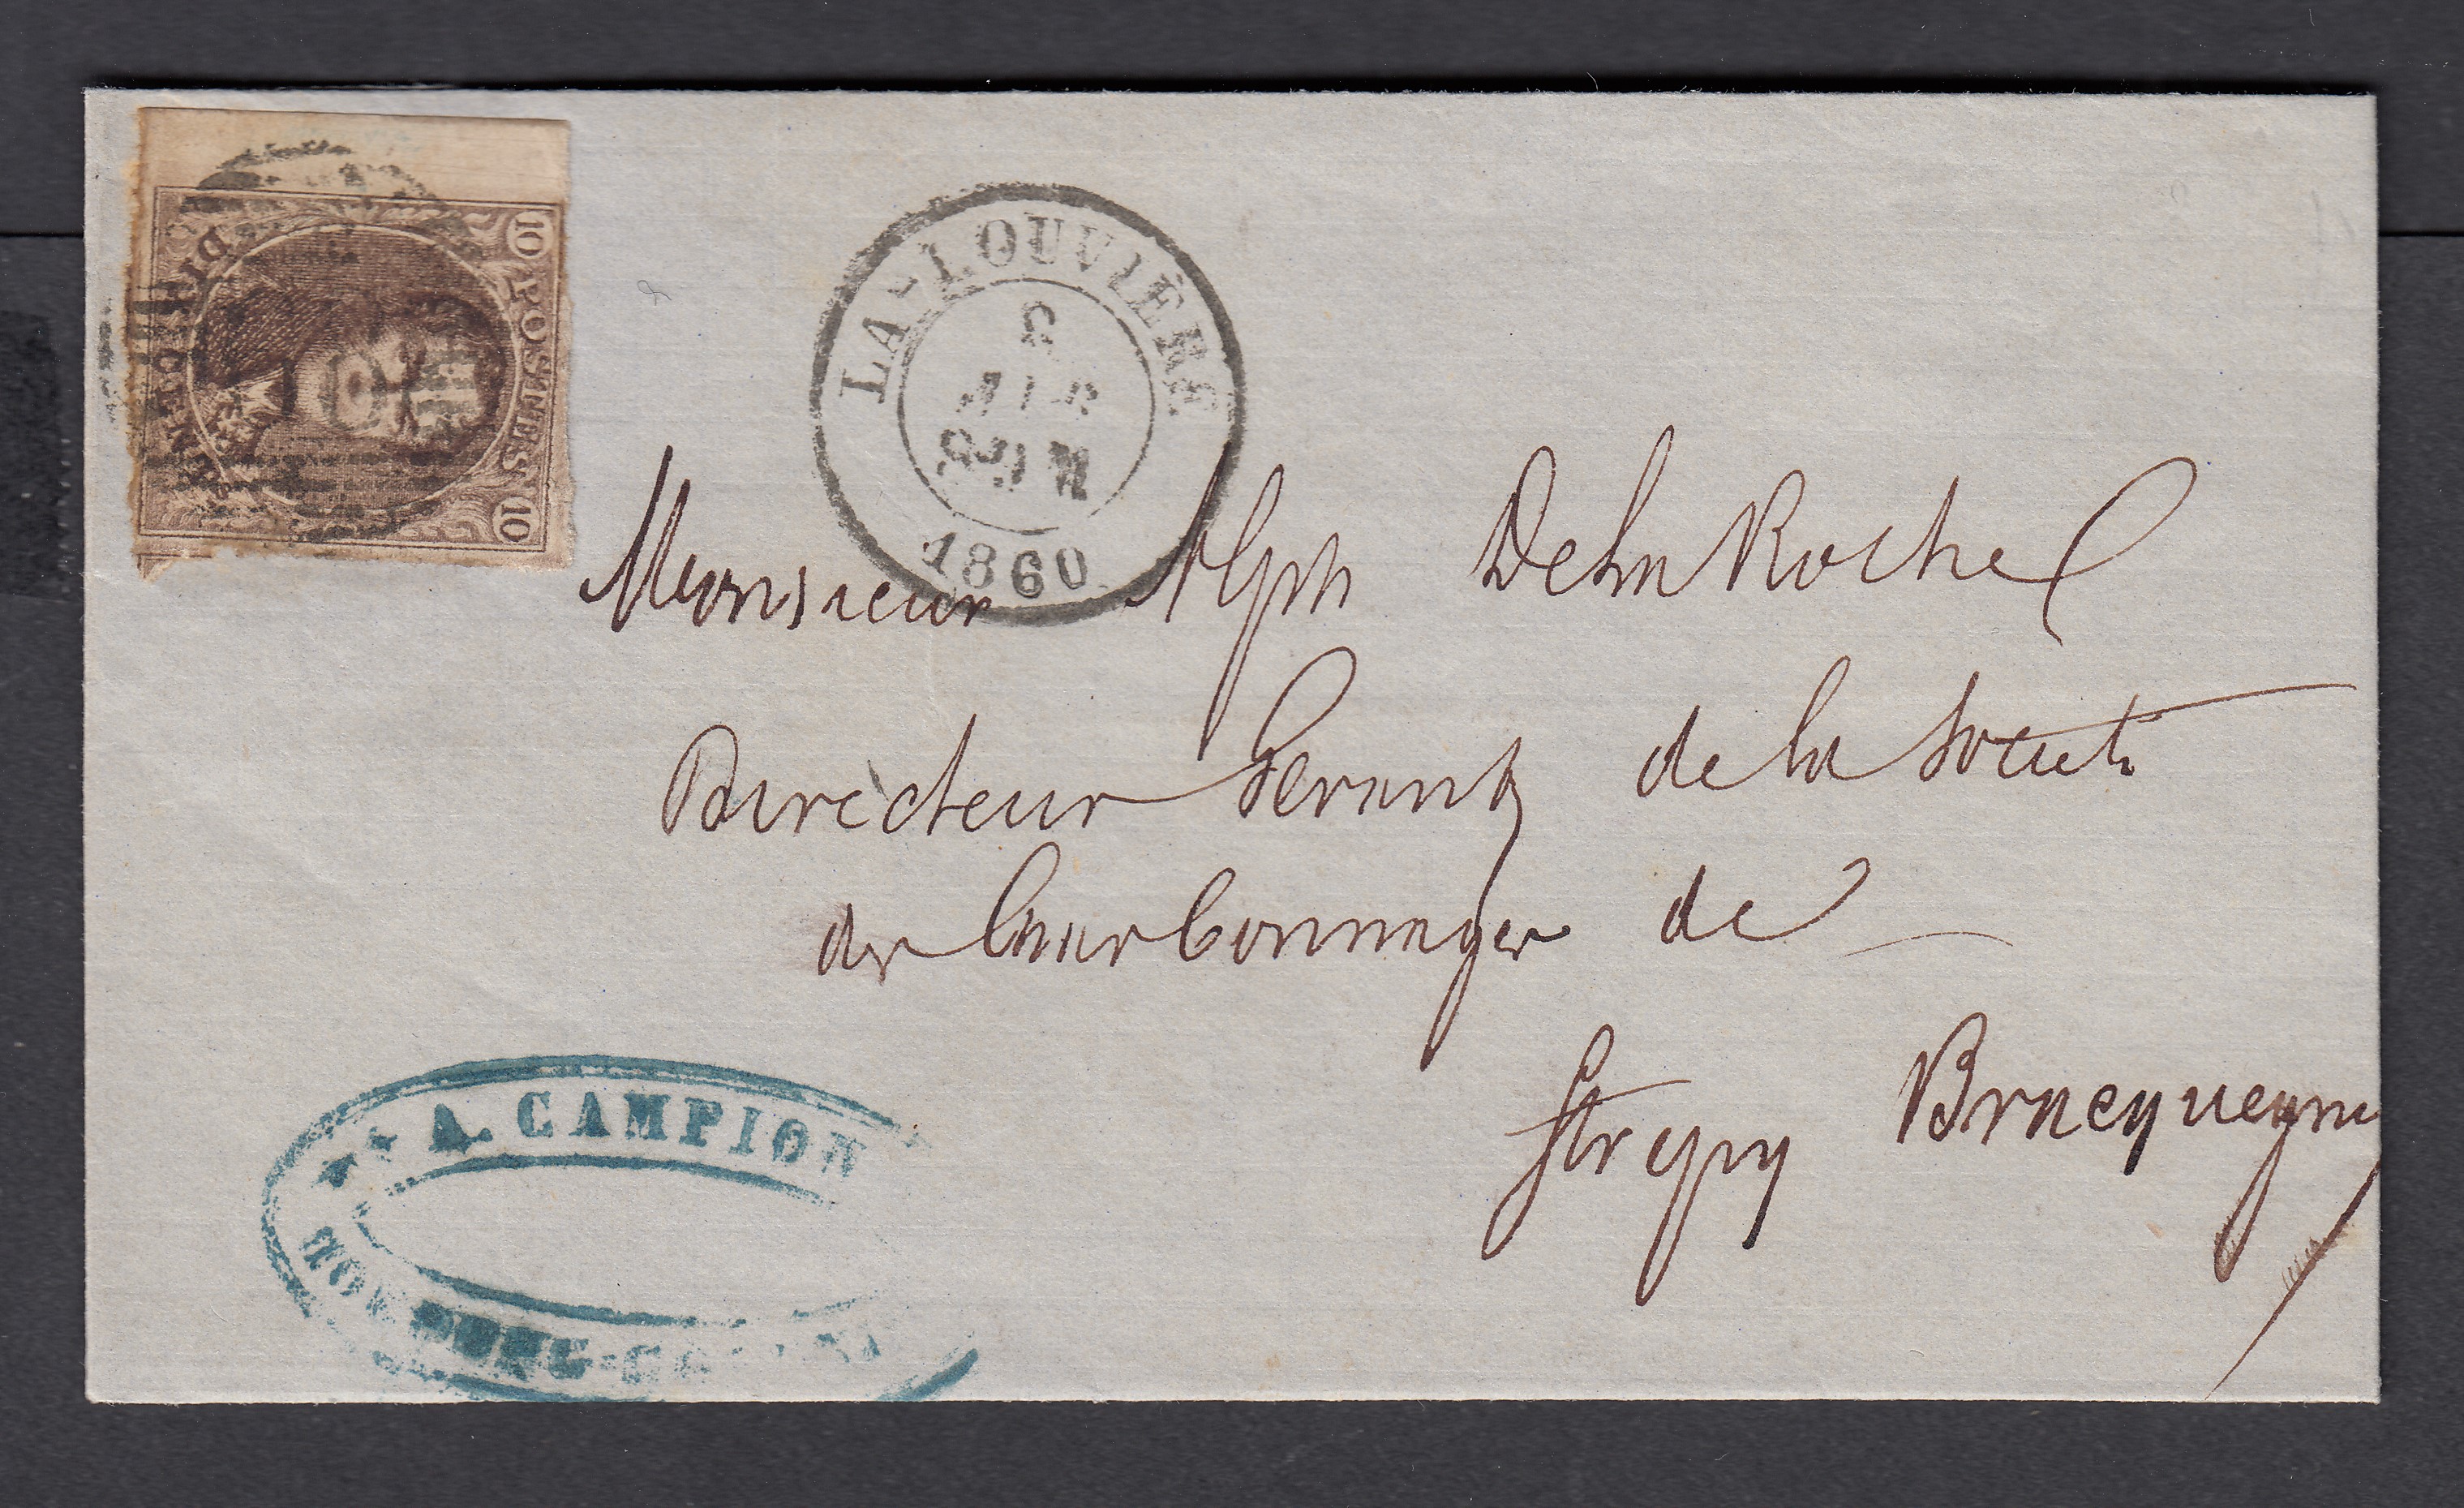 10 POSTES 10
DIX CENTIMES
LA-LOUVIÈRE
1860
Monsieur Alph Delaroche
Directeur Gerant de la Societé
des Charbonnages de
Strepy Bracquegnies
A. CAMPION